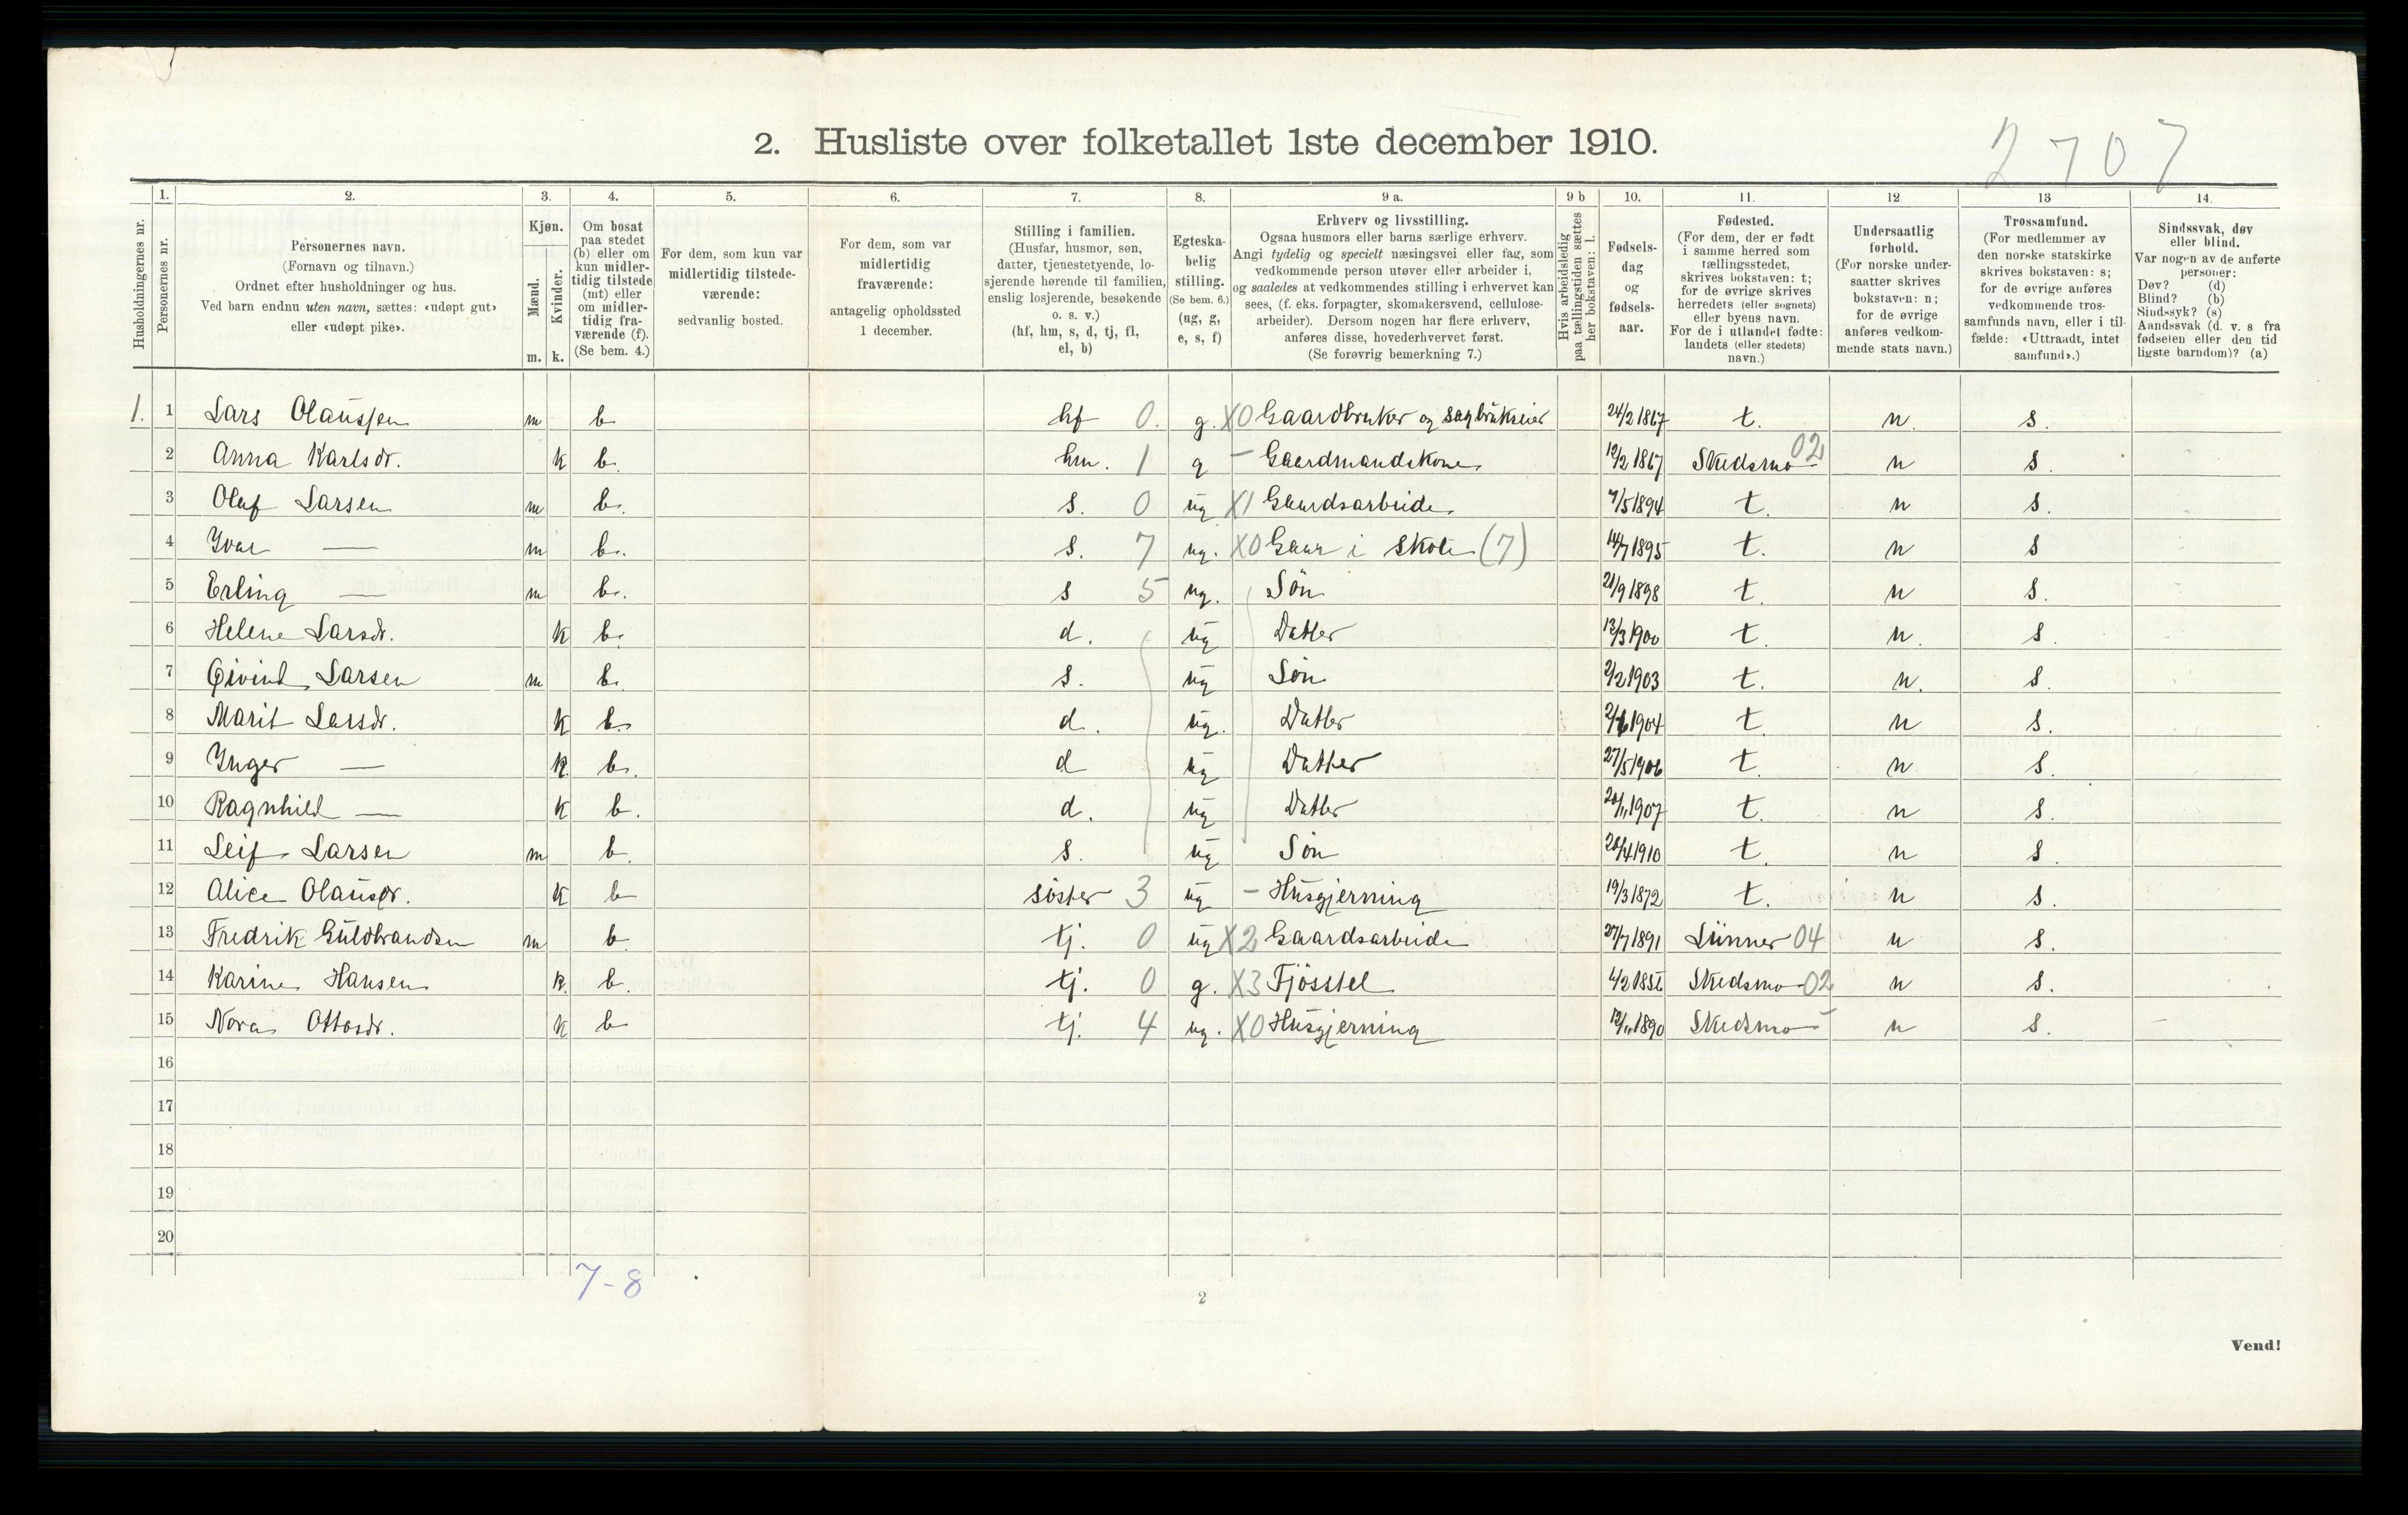 2. Husliste over folketallet 1ste december 1910.
2707
1. 2. 3. 4. 5. 6. 7. 8. 9 a. 9 b 10. 11. 12 13 14.
Husholdningernes nr.
Personernes nr.
Personernes navn.
(Fornavn og tilnavn.)
Ordnet efter husholdninger og hus.
Ved barn endnu uten navn, sættes: «udøpt gut»
eller «udøpt pike».
Kjøn.
Mænd.
Kvinder.
m. k.
Om bosat
paa stedet
(b) eller om
kun midler-
tidig tilstede
(mt) eller
om midler-
tidig fra-
værende (f).
(Se bem. 4.)
For dem, som kun var
midlertidig tilstede-
værende:
sedvanlig bosted.
For dem, som var
midlertidig
fraværende:
antagelig opholdssted
1 december.
Stilling i familien.
(Husfar, husmor, søn,
datter, tjenestetyende, lo-
sjerende hørende til familien,
enslig losjerende, besøkende
o. s. v.)
(hf, hm, s, d, tj, fl,
el, b)
Egteska-
belig
stilling.
(Se bem. 6.)
(ug, g,
e, s, f)
Erhverv og livsstilling.
Ogsaa husmors eller barns særlige erhverv.
Angi tydelig og specielt næringsvei eller fag, som
vedkommende person utøver eller arbeider i,
og saaledes at vedkommendes stilling i erhvervet kan
sees, (f. eks. forpagter, skomakersvend, cellulose-
arbeider). Dersom nogen har flere erhverv,
anføres disse, hovederhvervet først.
(Se forøvrig bemerkning 7.)
Hvis arbeidsledig
paa tællingstiden sættes
her bokstaven: l.
Fødsels-
dag
og
fødsels-
aar.
Fødested.
(For dem, der er født
i samme herred som
tællingsstedet,
skrives bokstaven: t;
for de øvrige skrives
herredets (eller sognets)
eller byens navn.
For de i utlandet fødte:
landets (eller stedets)
navn.)
Undersaatlig
forhold.
(For norske under-
saatter skrives
bokstaven: n;
for de øvrige
anføres vedkom-
mende stats navn.)
Trossamfund.
(For medlemmer av
den norske statskirke
skrives bokstaven: s;
for de øvrige anføres
vedkommende tros-
samfunds navn, eller i til-
fælde: «Uttraadt, intet
samfund».)
Sindssvak, døv
eller blind.
Var nogen av de anførte
personer:
Døv? (d)
Blind? (b)
Sindssyk? (s)
Aandssvak (d. v. s. fra
fødselen eller den tid
ligste barndom)? (a)
1. 1 Lars Olaussen m b hf 0. g. X0 Gaardbruker og sagbrukseier 24/2 1867 t. n. s.
2 Anna Karlsdr. k b. hm. 1 g – Gaardmandskone 12/2 1867 Skedsmo 02 n s.
3 Oluf Larsen m b. s. 0 ug X1 Gaardsarbeide 7/5 1894 t. n s.
4 Ivar — m b. s. 7 ug. X0 Gaar i skole (7) 14/7 1895 t. n s
5 Erling — m b. s 5 ug. Søn 21/9 1898 t. n s.
6 Helene Larsdr. k b. d. ug Datter 13/3 1900 t. n. s.
7 Øivind Larsen m b. s. ug Søn 2/2 1903 t. n. s.
8 Marit Larsdr. k b. d. ug. Datter 1904 t. n s.
9 Inger — k. b. d ug Datter 27/5 1906 t. n s.
10 Ragnhild — k b. d. ug Datter 20/11 1907 t. n s.
11 Leif Larsen m b. s. ug Søn 20/4 1910 t. n s.
12 Alice Olausdr. k b søster 3 ug – Husgjerning 19/3 1872 t. n s.
13 Fredrik Guldbrandsen m b. tj. 0 ug X2 Gaardsarbeide 27/7 1891 Lunner 04 n s.
14 Karine Hansen k. b. tj. 0 g. X3 Fjøsstel Skedsmo 02 n s.
15 Nora Ottosdr. k b tj. 4 ug. X0 Husgjerning 12/11 1890 Skedsmo – n s. –
16
17
18
19
20
7-8
2
Vend!